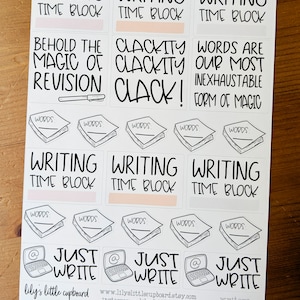 WRITING WRITING WRITING
TIME BLOCK TIME BLOCK TIME BLOCK
BEHOLD THE CLACKITY WORDS ARE
MAGIC OF CLACKITY OUR MOST
REVISION CLACK! INEXHAUSTABLE
FORM OF MAGIC
WORDS WORDS WORDS WORDS
WRITING WRITING WRITING
TIME BLOCK TIME BLOCK TIME BLOCK
WORDS WORDS WORDS WORDS
@ JUST @ JUST @ JUST
WRITE WRITE WRITE
lily's little cupboard www.lilyslittlecupboard.etsy.com